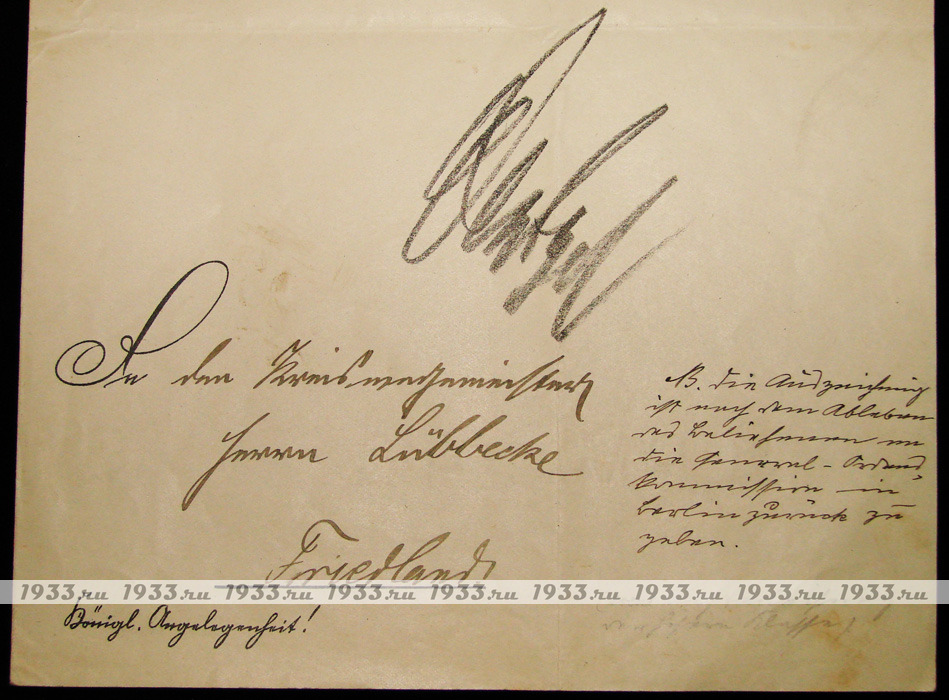 An den Kreiswegemeister
Herrn Lübbecke
Friedland
Königl. Angelegenheit!
NB. Die Auszeichnung
ist nach dem Ableben
des Beliehenen an
die General-Ordens-
kommission in
Berlin zurück zu
geben.
Klasse
1933.ru 1933.ru 1933.ru 1933.ru 1933.ru 1933.ru 1933.ru 1933.ru 1933.ru